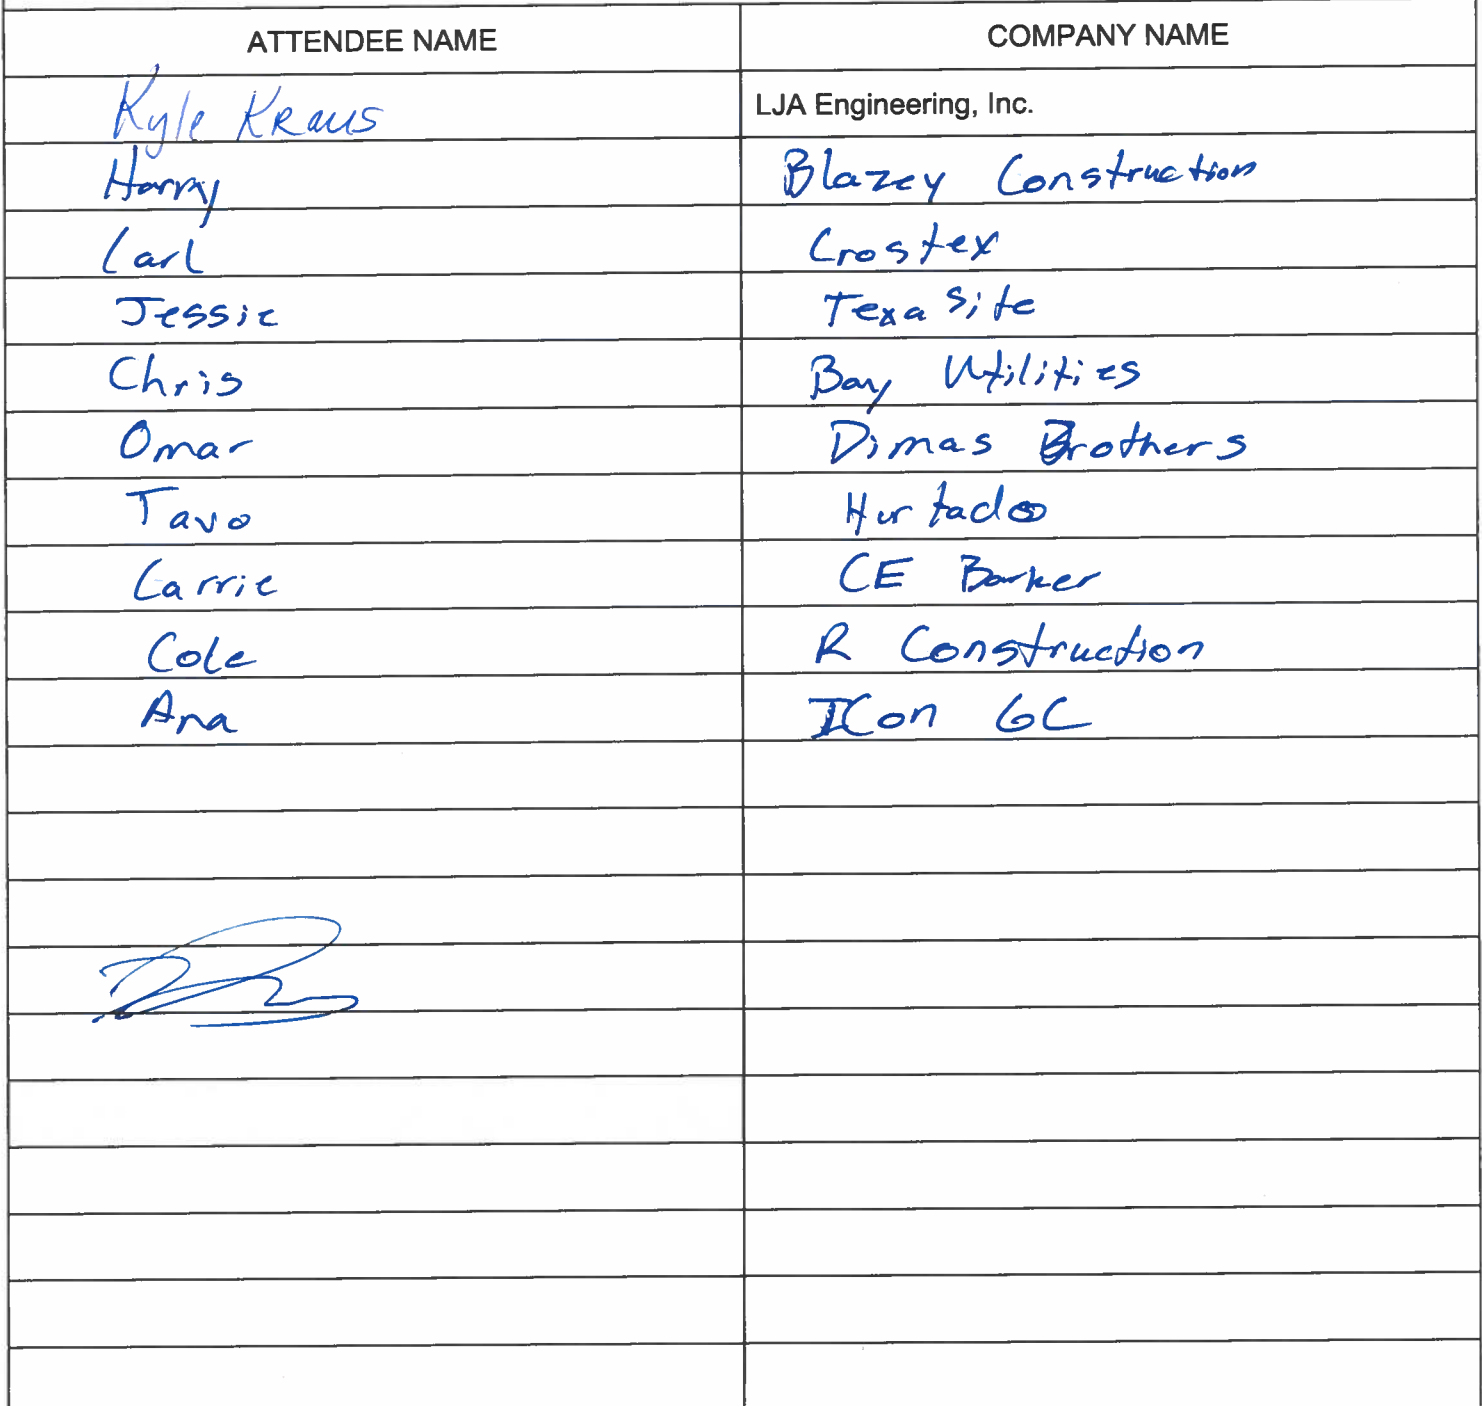 ATTENDEE NAME COMPANY NAME
Kyle Kraus LJA Engineering, Inc.
Harry Blazey Construction
Carl Crostex
Jessie Texasite
Chris Bay Utilities
Omar Dimas Brothers
Tavo Hurtado
Carrie CE Barker
Cole R Construction
Ana ICon GC